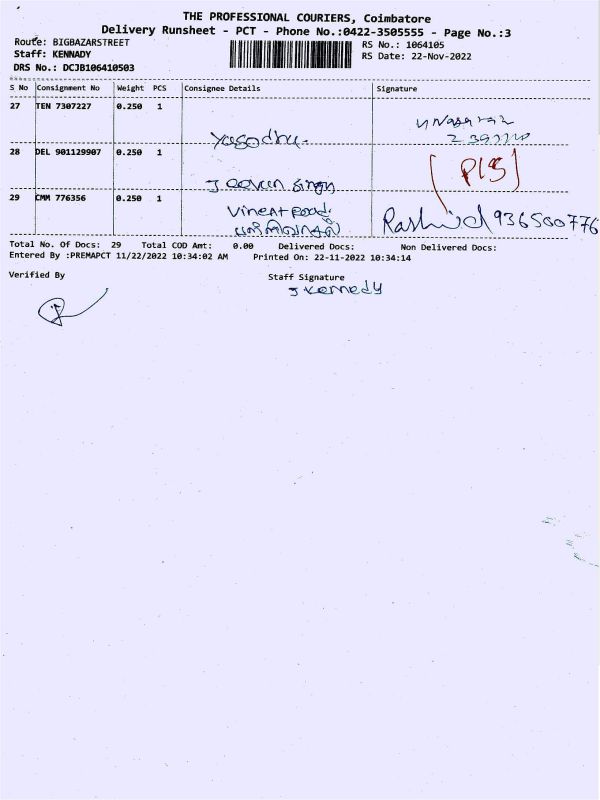 THE PROFESSIONAL COURIERS, Coimbatore
Delivery Runsheet - PCT - Phone No.:0422-3505555 - Page No.:3
Route: BIGBAZARSTREET
RS No.: 1064105
Staff: KENNADY
RS Date: 22-Nov-2022
DRS No.: DCJB106410503
S No Consignment No Weight PCS Consignee Details Signature
27 TEN 7307227 0.250 1
Yasodha.
28 DEL 901129907 0.250 1 [PIS]
Jeevan Singh
29 CMM 776356 0.250 1
Vincent Road. Rashid 936500776
Total No. Of Docs: 29 Total COD Amt: 0.00 Delivered Docs: Non Delivered Docs:
Entered By :PREMAPCT 11/22/2022 10:34:02 AM Printed On: 22-11-2022 10:34:14
Verified By Staff Signature
J Kennedy